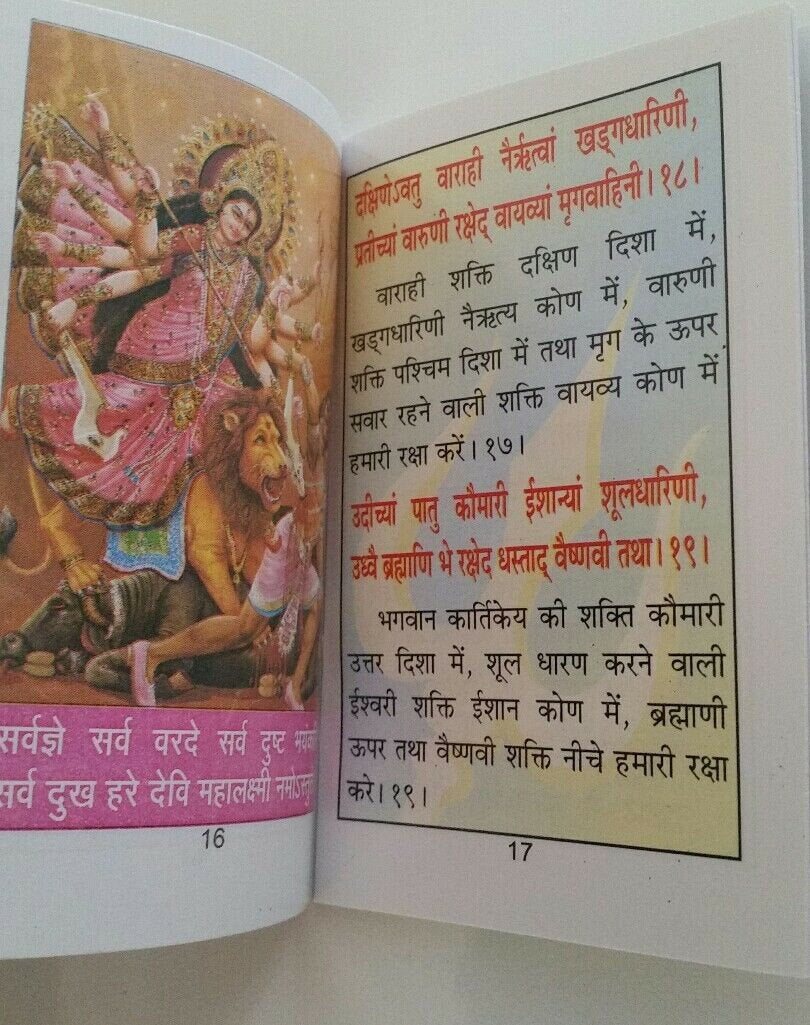 सर्वज्ञे सर्व वरदे सर्व दुष्ट
सर्व दुख हरे देवि महालक्ष्मी नमोऽस्तु
16
दक्षिणेऽवतु वाराही नैर्ऋत्वां खड्गधारिणी,
प्रतीच्यां वारुणी रक्षेद् वायव्यां मृगवाहिनी।१८।
वाराही शक्ति दक्षिण दिशा में,
खड्गधारिणी नैऋत्य कोण में, वारुणी
शक्ति पश्चिम दिशा में तथा मृग के ऊपर
सवार रहने वाली शक्ति वायव्य कोण में
हमारी रक्षा करें।१७।
उदीच्यां पातु कौमारी ईशान्यां शूलधारिणी,
उध्वै ब्रह्माणि भे रक्षेद धस्ताद् वैष्णवी तथा।१९।
भगवान कार्तिकेय की शक्ति कौमारी
उत्तर दिशा में, शूल धारण करने वाली
ईश्वरी शक्ति ईशान कोण में, ब्रह्माणी
ऊपर तथा वैष्णवी शक्ति नीचे हमारी रक्षा
करे।१९।
17